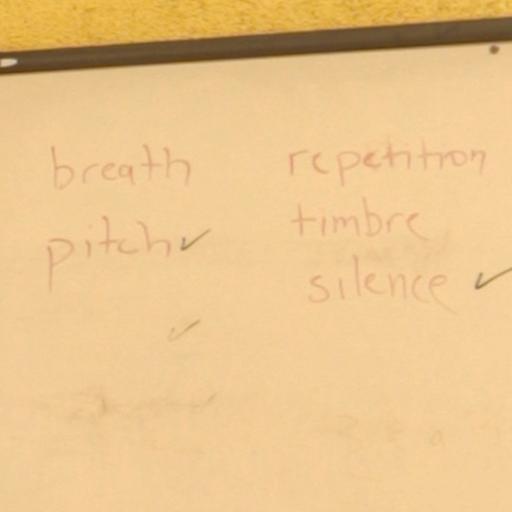 breath
pitch ✓
✓
repetition
timbre
silence ✓